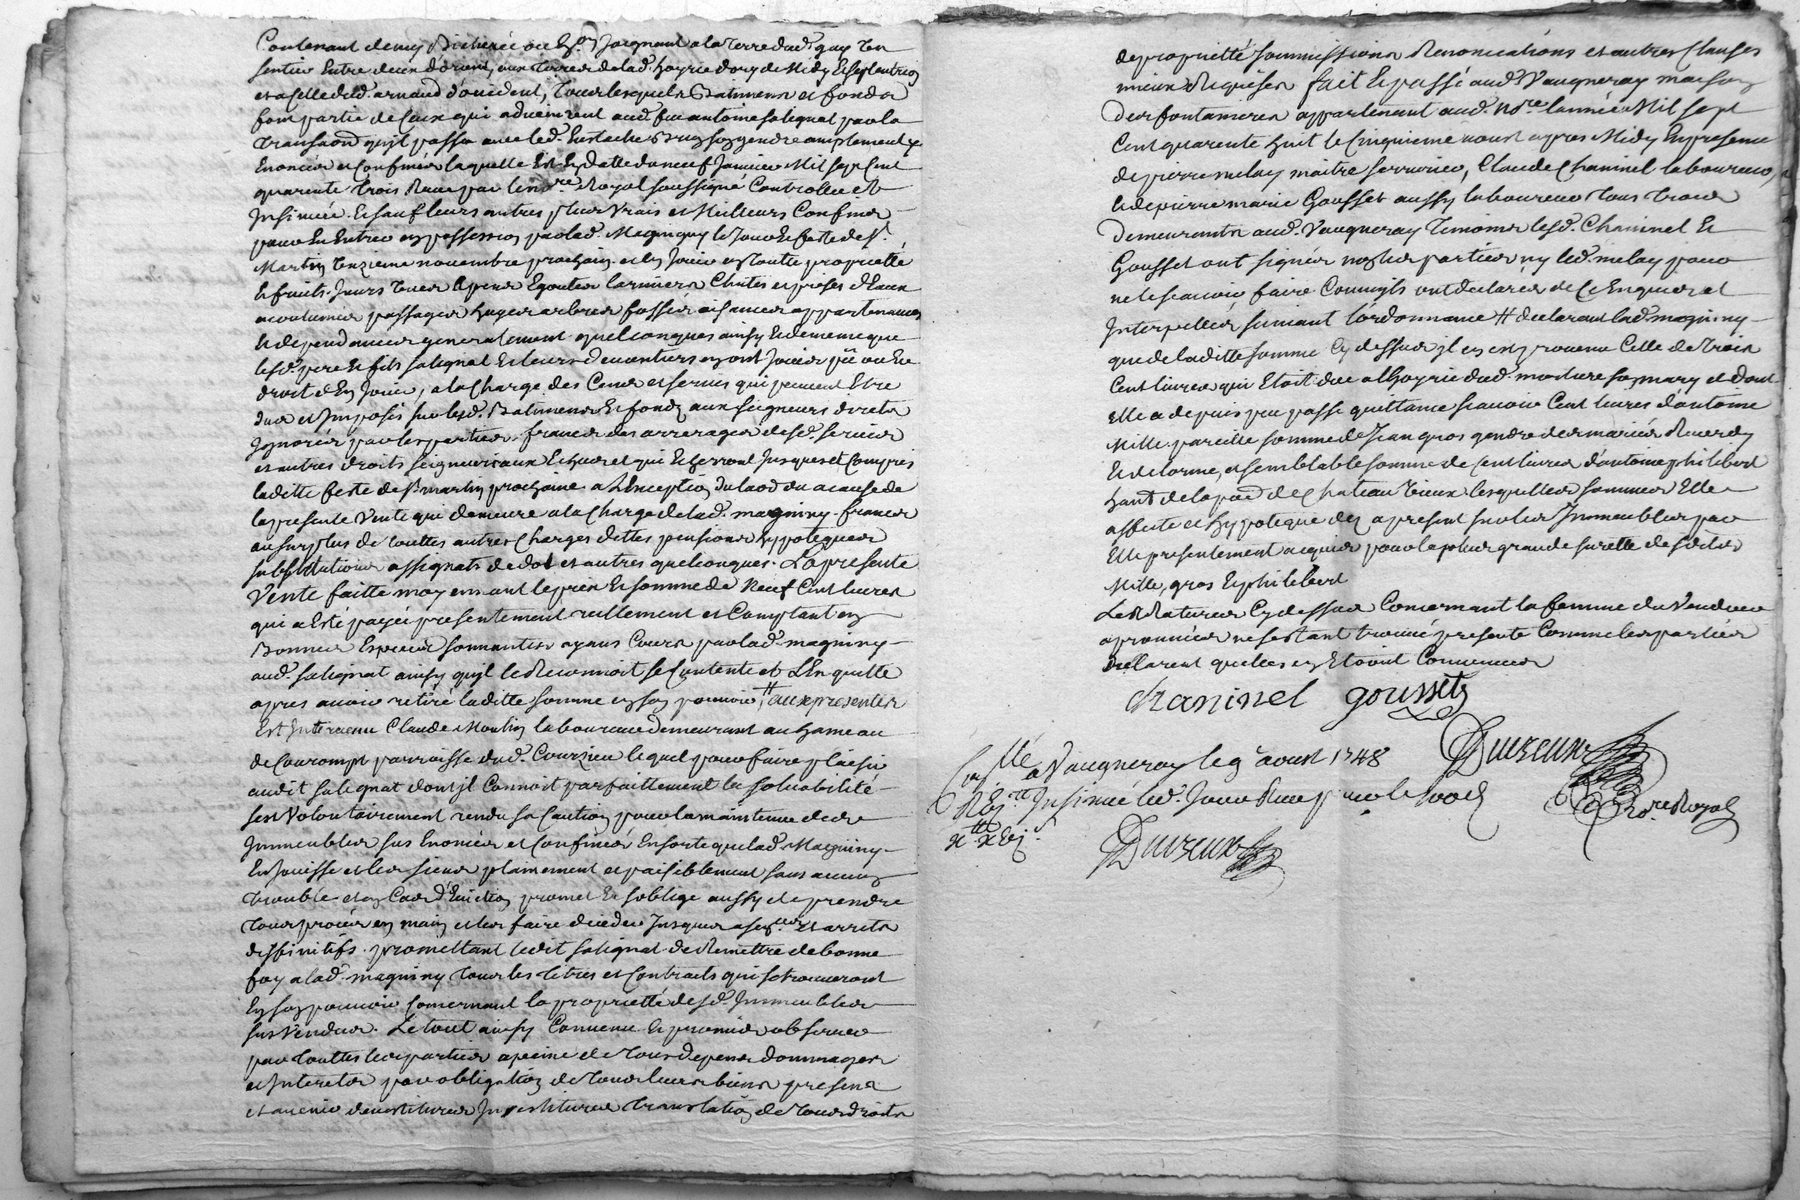 Contenant demy Bicherée ou Environ Joignant a la terre dud. guy un
sentier Entre deux d'orient, aux terres de lad. hoyrie d'ory de Midy Et septentrion
et a celle dud. arnaud d'occident, Tous lesquels Batimens et fonds
font partie de Ceux qui advinrent aud. feu antoine salignat par la
transaon qu'il passa avec led. Eustache son gendre amplement y
Enoncés et Confinés laquelle Est En datte du neuf Janvier Mil sept Cent
quarente trois Reçue par le no.re Royal soussigné Controllée et
Insinuée. Et sauf leurs autres plus vrais et Meilleurs Confins
pour En Entrer en possession par lad. Magniny le Jour et feste de St.
Martin onzieme novembre prochain et En Jouir en toutte proprieté
et fruits. Jours vues apens Egouts larmiers Chutes et prises d'Eaux
accoutumés passages hayes arbres fossés aisances appartenances
et dependances generalement quelconques ainsy Et de meme que
lesd. pere Et fils salignat Et leurs devantiers ayant Jouir pû ou Eu
droit d'En Jouir, a la Charge des Cens et servis qui peuvent Etre
dus et Imposés sur lesd. Batimens Et fonds aux seigneurs directs
Ignorés par les parties, francs des arrerages desd. servis
et autres droits seigneuriaux Echus et qui Echerront Jusques et Compris
ladite feste de St martin prochaine a L'Exception du laod du a cause de
la presente Vente qui demeure a la Charge de lad. magniny. francs
au surplus de touttes autres Charges dettes pensions hypoteques
substitutions assignats de dot et autres quelconques. La presente
Vente faitte moyennant le prix Et somme de Neuf Cent livres
qui a Esté payée presentement reellement et Comptant en
Bonnes Especes sonnantes ayans Cours par lad. magniny
aud. salignat ainsy qu'il le Reconnoit se Contente et L'En quitte
apres avoir retiré laditte somme en son pouvoir, # aux presentes
Est Intervenu Claude Moulin laboureur demeurant au hameau
de Courompt parroisse dud. Courzieu lequel pour faire plaisir
audit salignat dont Il Connoit parfaittement la solvabilité
s'est Volontairement rendu sa Caution pour la maintenue desd.
Immeubles sus Enoncés et Confinés En sorte que lad. Magniny
En Jouisse et les siens plainement et paisiblement sans aucun
trouble et en Cas d'Eviction promet Et s'oblige aussy de prendre
tous procès en main et les faire decider Jusques a sen.ces Et arrets
deffinitifs. promettant ledit salignat de Remettre de bonne
foy a lad. magniny tous les titres et Contracts qui se trouveront
En son pouvoir Concernant la proprieté desd. Immeubles
sus Vendus. Le tout ainsy Convenu Et promis observer
par touttes les parties a peine de tous depens dommages
et Interets par obligation de tous leurs biens presens
et avenir devestitures Investitures translation de tous droits
de proprietté soumissions Renonciations et autres Clauses
mieux Requises fait Et passé aud. Vaugneray maison
des fontanieres appartenant aud. no.re l'année Mil sept
Cent quarente huit le Cinquieme aoust apres Midy En presence
de pierre melay maitre serrurier, Claude Chaninel laboureur,
Et de pierre marie Gousset aussy laboureur tous trois
demeurants aud. Vaugneray temoins lesd. Chaninel Et
Gousset ont signés non les parties ny led. melay pour
ne le scavoir faire Comm'ils ont declarés de Ce Enquis et
Interpellés suivant l'ordonnance # declarant lad. magniny
que de laditte somme Cy dessus Il En est provenu Celle de trois
Cent livres qui Etoit due a l'hoyrie dud. son mary et dont
Elle a depuis peu passé quittance scavoir Cent livres d'antoine
Mille pareille somme de Jean gros gendre des mariés
Et delorme, et semblable somme de Cent livres d'antoine philibert
de la par de Chateau vieux lesquelles sommes Elle
affecte et hypoteque des a present sur les Immeubles par
Elle presentement acquis pour la plus grande suretté desdits
Mille, gros Et philibert
Les Ratures Cy dessus Concernant la femme du Vendeur
approuvées ne s'etant trouvé presente Comme les parties
declarent qu'elles en Etoient Convenues
Chaninel gousset
Duvieux
no.re Royal
Con.llé a Vaugneray le 9 aoust 1748
R. Insinué led. Jour Reçu pour le
Duvieux